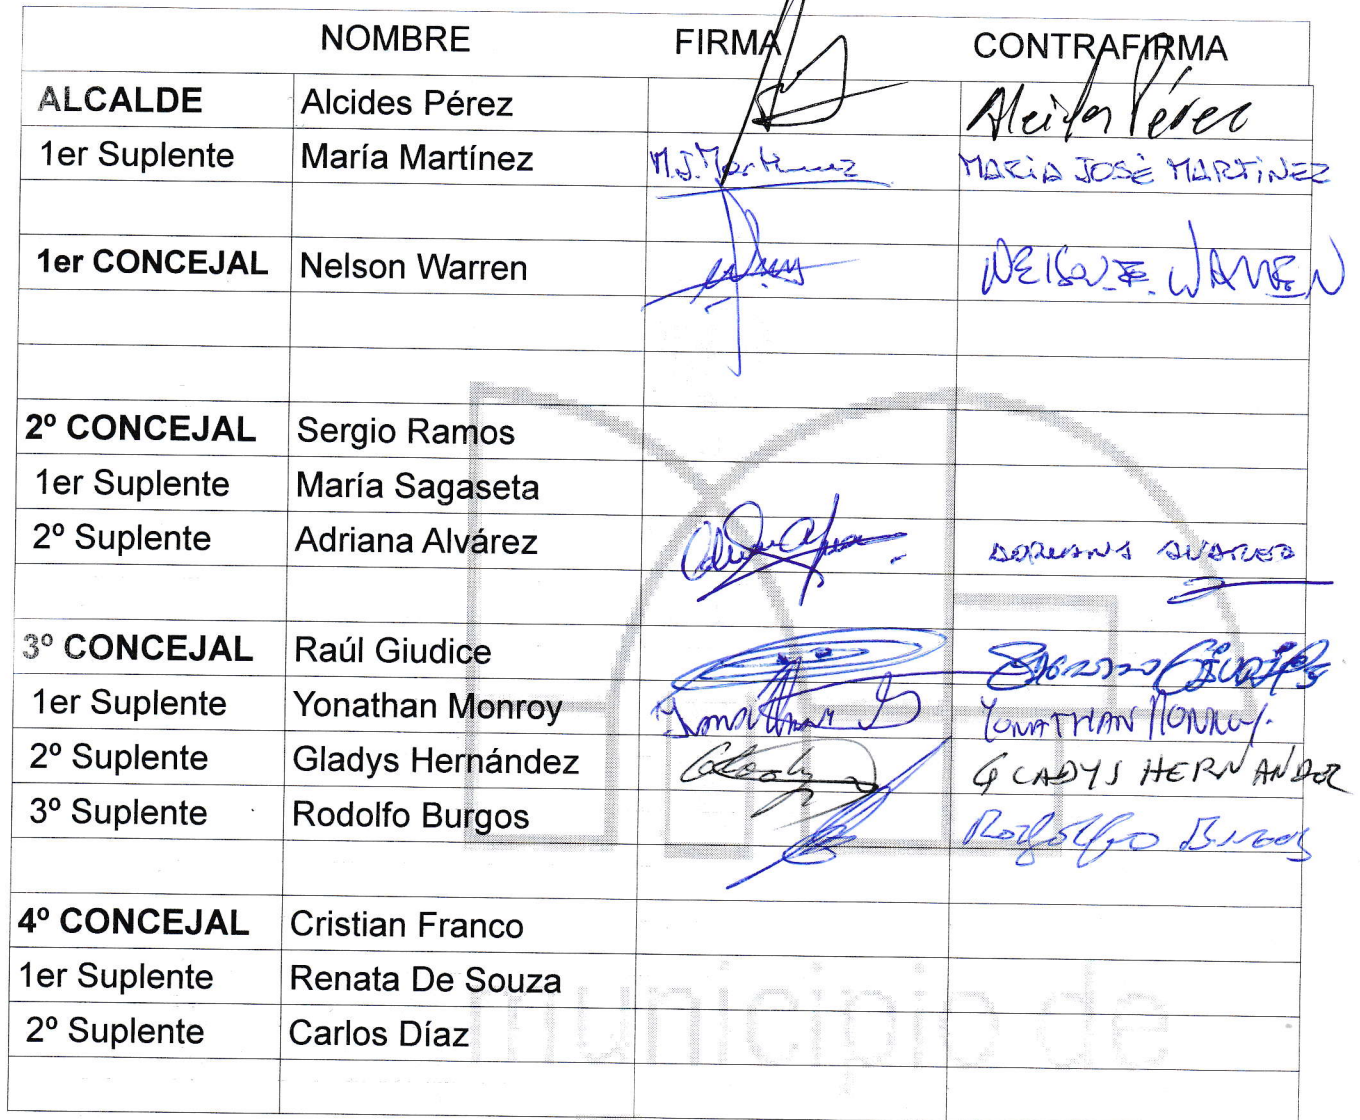 NOMBRE FIRMA CONTRAFIRMA
ALCALDE Alcides Pérez Alcides Pérez
1er Suplente María Martínez M.J. Martinez MARÍA JOSÉ MARTÍNEZ
1er CONCEJAL Nelson Warren NELSON E. WARREN
2º CONCEJAL Sergio Ramos
1er Suplente María Sagaseta
2º Suplente Adriana Alvárez ADRIANA ALVAREZ
3º CONCEJAL Raúl Giudice GIUDICE
1er Suplente Yonathan Monroy Yonathan YONATHAN MONROY.
2º Suplente Gladys Hernández GLADYS HERNANDEZ
3º Suplente Rodolfo Burgos Rodolfo Burgos
4º CONCEJAL Cristian Franco
1er Suplente Renata De Souza
2º Suplente Carlos Díaz
municipio de